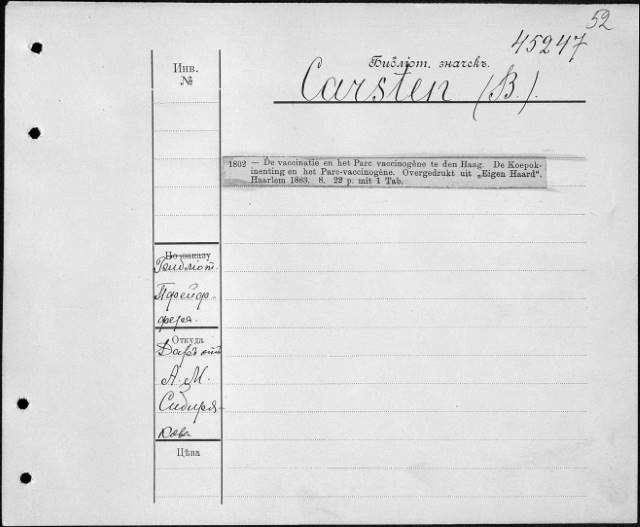 52
45247
Библіот. значекъ.
Carsten (B.).
Инв.
№
1802 — De vaccinatie en het Parc vaccinogène te den Haag. De Koepok-
inenting en het Parc-vaccinogène. Overgedrukt uit „Eigen Haard".
Haarlem 1883. 8. 22 p. mit 1 Tab.
По заказу
Библіот.
Пфейф-
фера.
Откуда
Даръ отъ
А. М.
Сибиря-
кова
Цѣна